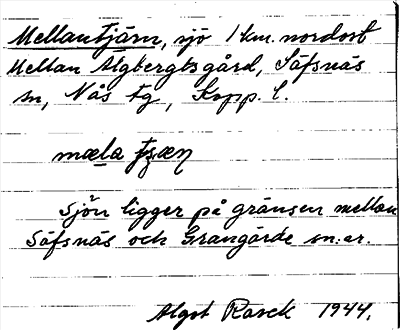 Mellantjärn, sjö 1 km. nordost
Mellan Älgbergtsgård, Säfsnäs
sn, Nås tg, Kopp. l.
mæla
Sjön ligger på gränsen mellan
Säfsnäs och Grangärde sn:ar.
Algot Rasck 1944.